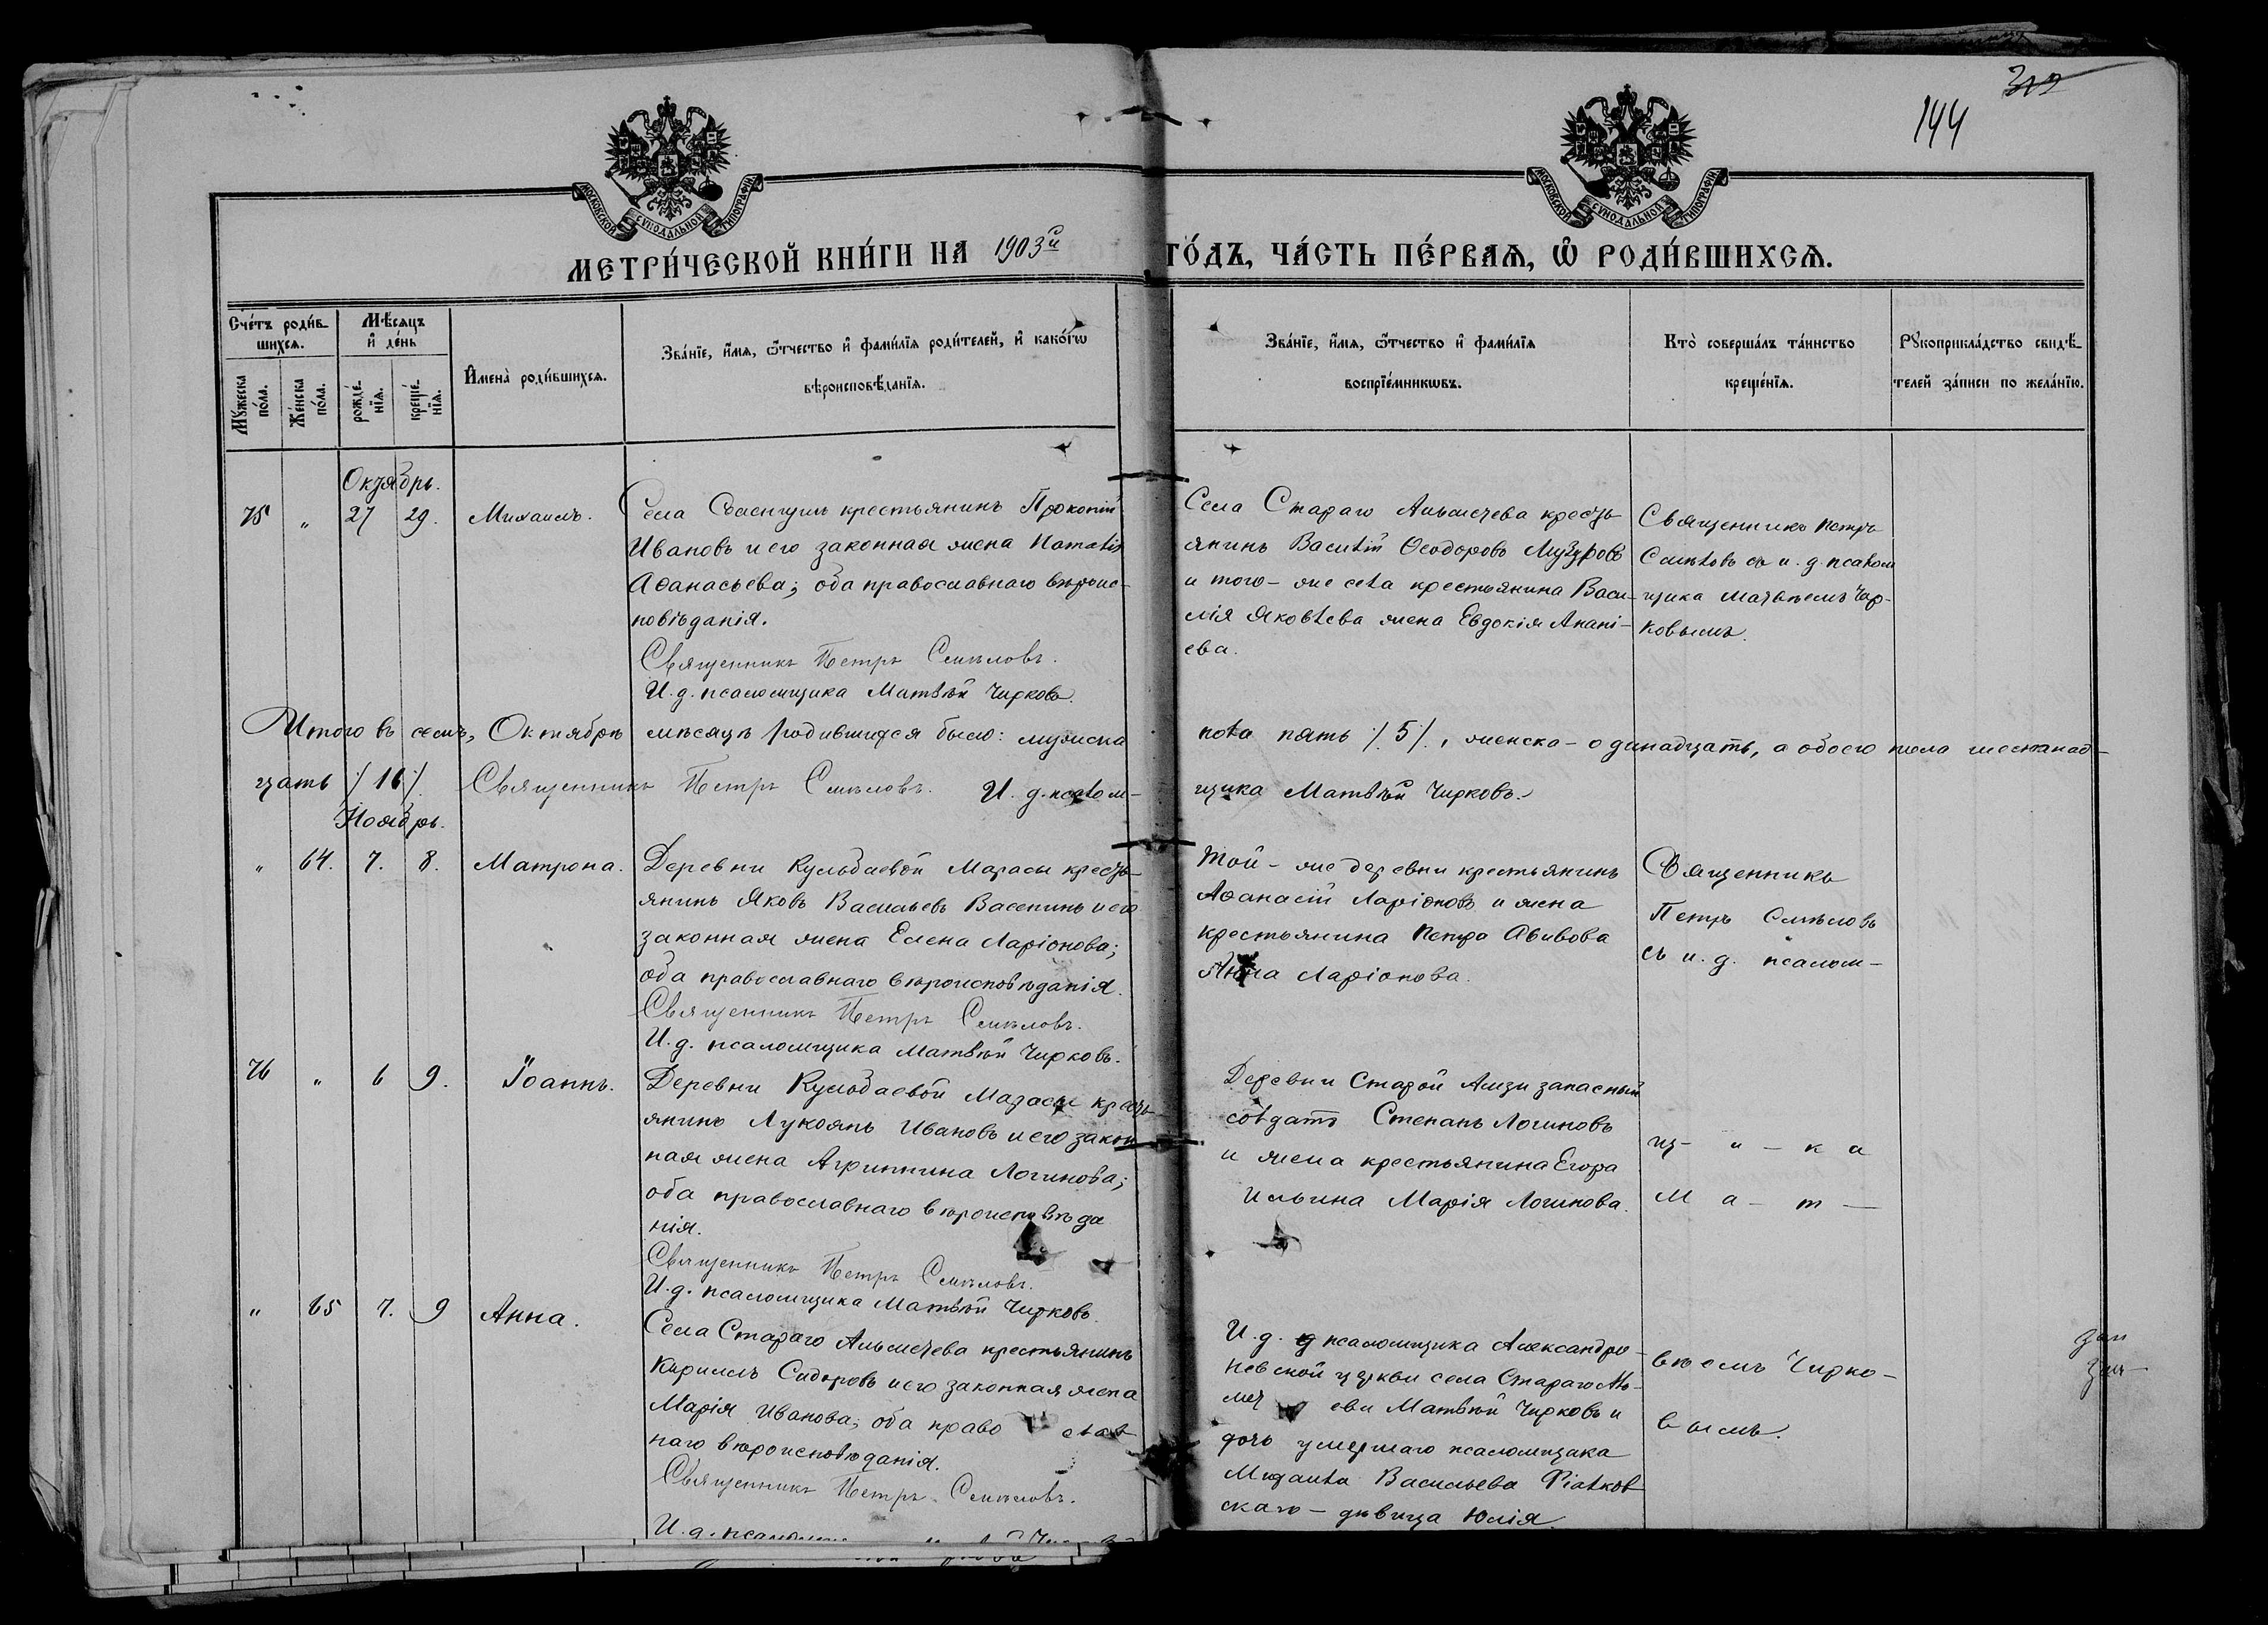 319
144
МОСКОВСКОЙ СѴНОДАЛЬНОЙ ТИПОГРАФІИ
МОСКОВСКОЙ СѴНОДАЛЬНОЙ ТИПОГРАФІИ
МЕТРИ́ЧЕСКОЙ КНИ́ГИ НА 1903й ГО́ДЪ, ЧА́СТЬ ПЕ́РВАѦ, Ѡ РОДИ́ВШИХСѦ.
Сче́тъ роди́в-
шихсѧ.
Мѣ́сѧцъ
и҆ де́нь
Мꙋ́жеска
по́ла.
Же́нска
по́ла.
рожде́-
нїѧ.
креще́-
нїѧ.
И҆мена̀ роди́вшихсѧ.
Зва́нїе, и҆́мѧ, ѻ҆́тчество и҆ фами́лїѧ роди́телей, и҆ како́гѡ
вѣроисповѣ́данїѧ.
Зва́нїе, и҆́мѧ, ѻ҆́тчество и҆ фами́лїѧ
воспрїе́мникѡвъ.
Кто̀ соверша́лъ та́инство
креще́нїѧ.
Рꙋкоприкла́дство свидѣ́-
телей за́писи по жела́нїю.
Октябрь.
75 „ 27 29. Михаилъ.
Села крестьянинъ Прокопій
Ивановъ и его законная жена Наталія
Аѳанасьева; оба православнаго вѣроис-
повѣданія.
Священникъ Петръ Смѣловъ.
И. д. псаломщика Матвѣй Чирковъ.
Села Стараго Альметева кресть
янинъ Василій Ѳеодоровъ Музуровъ
и того-же села крестьянина Васи-
лія Яковлева жена Евдокія Анані-
ева.
Священникъ Петръ
Смѣловъ съ и. д. псалом
щика Матвѣемъ Чир-
ковымъ.
Итого въ семъ, Октябрѣ мѣсяцѣ родившихся было: мужска пола пять /5/, женска - одинадцать, а обоего пола шестнад-
цать /16/. Священникъ Петръ Смѣловъ. И. д. псалом- щика Матвѣй Чирковъ.
Ноябрь.
„ 64. 7. 8. Матрона.
Деревни Кульбаевой Марасы кресть-
янинъ Яковъ Васильевъ Васенинъ и его
законная жена Елена Ларіонова;
оба православнаго вѣроисповѣданія.
Священникъ Петръ Смѣловъ.
И. д. псаломщика Матвѣй Чирковъ.
Той-же деревни крестьянинъ
Аѳанасій Ларіоновъ и жена
крестьянина Петра Авивова
Анна Ларіонова.
Священникъ
Петръ Смѣловъ
съ и. д. псалом-
76 „ 6 9. Іоаннъ.
Деревни Кульбаевой Марасы кресть-
янинъ Лукоянъ Ивановъ и его закон
ная жена Агриппина Логинова;
оба православнаго вѣроисповѣда
нія.
Священникъ Петръ Смѣловъ.
И. д. псаломщика Матвѣй Чирковъ.
Деревни Старой Амзи запасный
солдатъ Степанъ Логиновъ
и жена крестьянина Егора
Ильина Марія Логинова.
щ- и - к а
М а - т -
„ 65 7. 9 Анна.
Села Стараго Альметева крестьянинъ
Кириллъ Сидоровъ и его законная жена
Марія Иванова; оба право слав
наго вѣроисповѣданія.
Священникъ Петръ Смѣловъ.
И. д.
И. д. псаломщика Александро-
невской церкви села Стараго Аль-
мет ева Матвѣй Чирковъ и
дочь умершаго псаломщика
Михаила Васильева Фіалков
скаго - дѣвица Юлія.
вѣемъ Чирко-
вымъ.